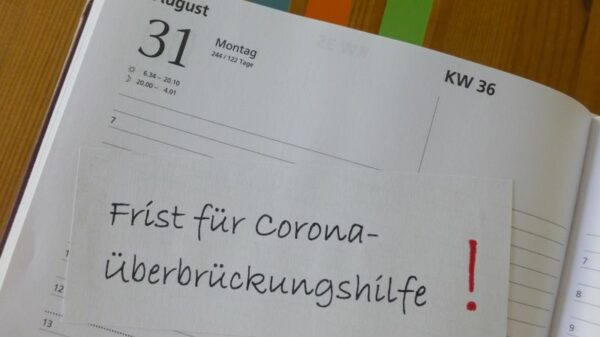 August
31
Montag
244 / 122 Tage
6.34 – 20.10
20.00 – 4.01
KW 36
7
Frist für Corona-
überbrückungshilfe !
13
7
8
9